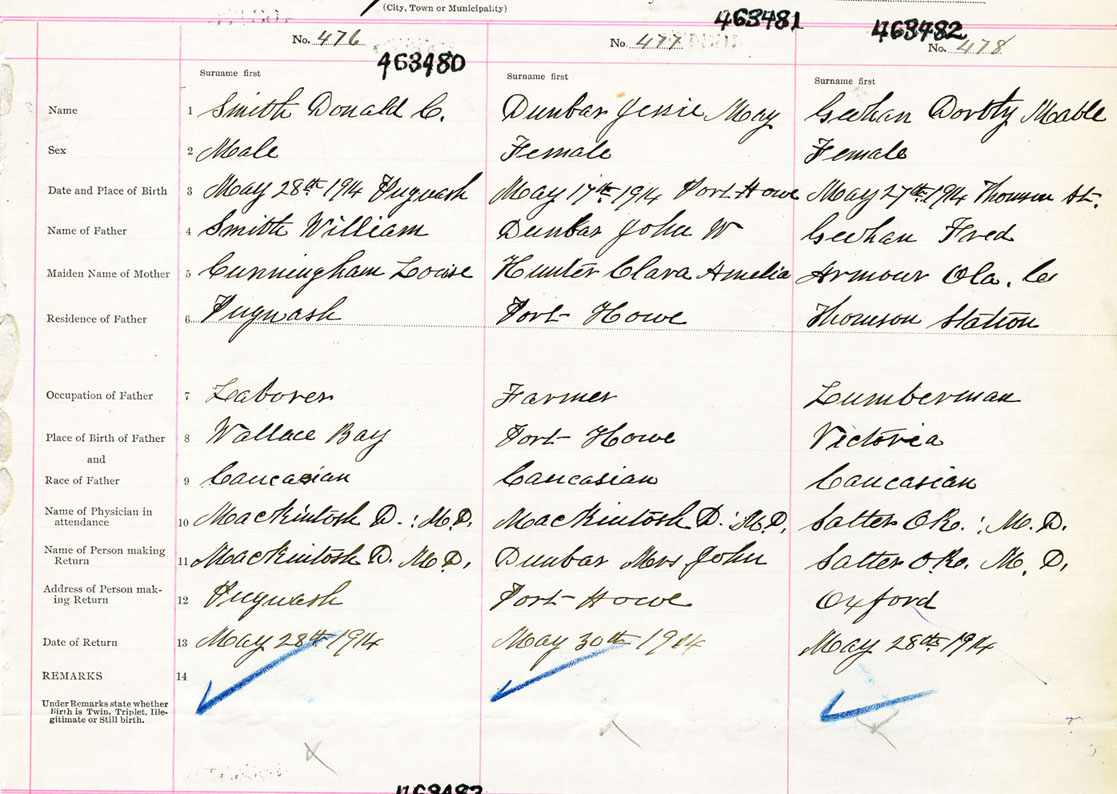 (City, Town or Municipality)
463481
463482
No. 476
No. 477
No. 478
463480
Surname first
Surname first
Surname first
Name 1 Smith Donald C. Dunbar Jessie May Geehan Dorthy Mable
Sex 2 Male Female Female
Date and Place of Birth 3 May 28th 1914 Pugwash May 17th 1914 Port Howe May 27th 1914 Thomson St.
Name of Father 4 Smith William Dunbar John W Geehan Fred
Maiden Name of Mother 5 Cunningham Louise Hunter Clara Amelia Armour Ola. C
Residence of Father 6 Pugwash Port Howe Thomson Station
Occupation of Father 7 Laborer Farmer Lumberman
Place of Birth of Father 8 Wallace Bay Port Howe Victoria
and
Race of Father 9 Caucasian Caucasian Caucasian
Name of Physician in
attendance 10 Mackintosh D. : M.D. Mackintosh D : M.D. : M.D.
Name of Person making
Return 11 Mackintosh D. M.D. Dunbar Mrs John M.D.
Address of Person mak-
ing Return 12 Pugwash Port Howe Oxford
Date of Return 13 May 28th 1914 May 30th 1914 May 28th 1914
REMARKS 14
Under Remarks state whether
Birth is Twin, Triplet, Ille-
gitimate or Still birth.
463483